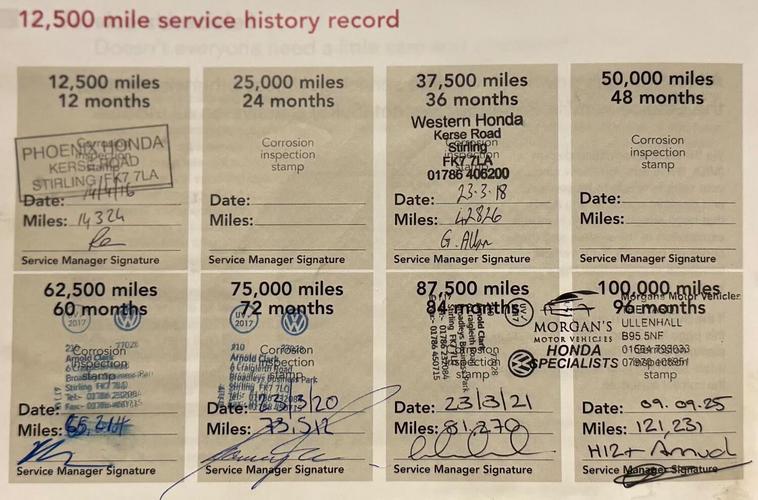 12,500 mile service history record
12,500 miles
12 months
Corrosion
inspection
stamp
PHOENIX HONDA
KERSE ROAD
STIRLING FK7 7LA
Date: 14/4/16
Miles: 14324
Service Manager Signature
25,000 miles
24 months
Corrosion
inspection
stamp
Date:
Miles:
Service Manager Signature
37,500 miles
36 months
Western Honda
Kerse Road
Stirling
FK7 7LA
01786 406200
Date: 23-3-18
Miles: 42826
G. Allan
Service Manager Signature
50,000 miles
48 months
Corrosion
inspection
stamp
Date:
Miles:
Service Manager Signature
62,500 miles
60 months
UV/
2017
Corrosion
inspection
stamp
210
Arnold Clark
6 Craigleith Road
Broadleys Business Park
Stirling FK7 7LQ
Date:
Miles:
Service Manager Signature
75,000 miles
72 months
UV/
2017
Corrosion
inspection
stamp
210
Arnold Clark
6 Craigleith Road
Broadleys Business Park
Stirling FK7 7LQ
Date: 23/3/20
Miles: 73,512
Service Manager Signature
87,500 miles
84 months
Arnold Clark
Craigleith Road
Broadleys Business Park
Stirling FK7
Date: 23/3/21
Miles: 81,370
Service Manager Signature
100,000 miles
96 months
MORGAN'S
MOTOR VEHICLES
HONDA
SPECIALISTS
Morgans Motor Vehicles
ULLENHALL
B95 5NF
Corrosion
inspection
stamp
Date: 09.09.25
Miles: 121,231
H12+ Annual
Service Manager Signature